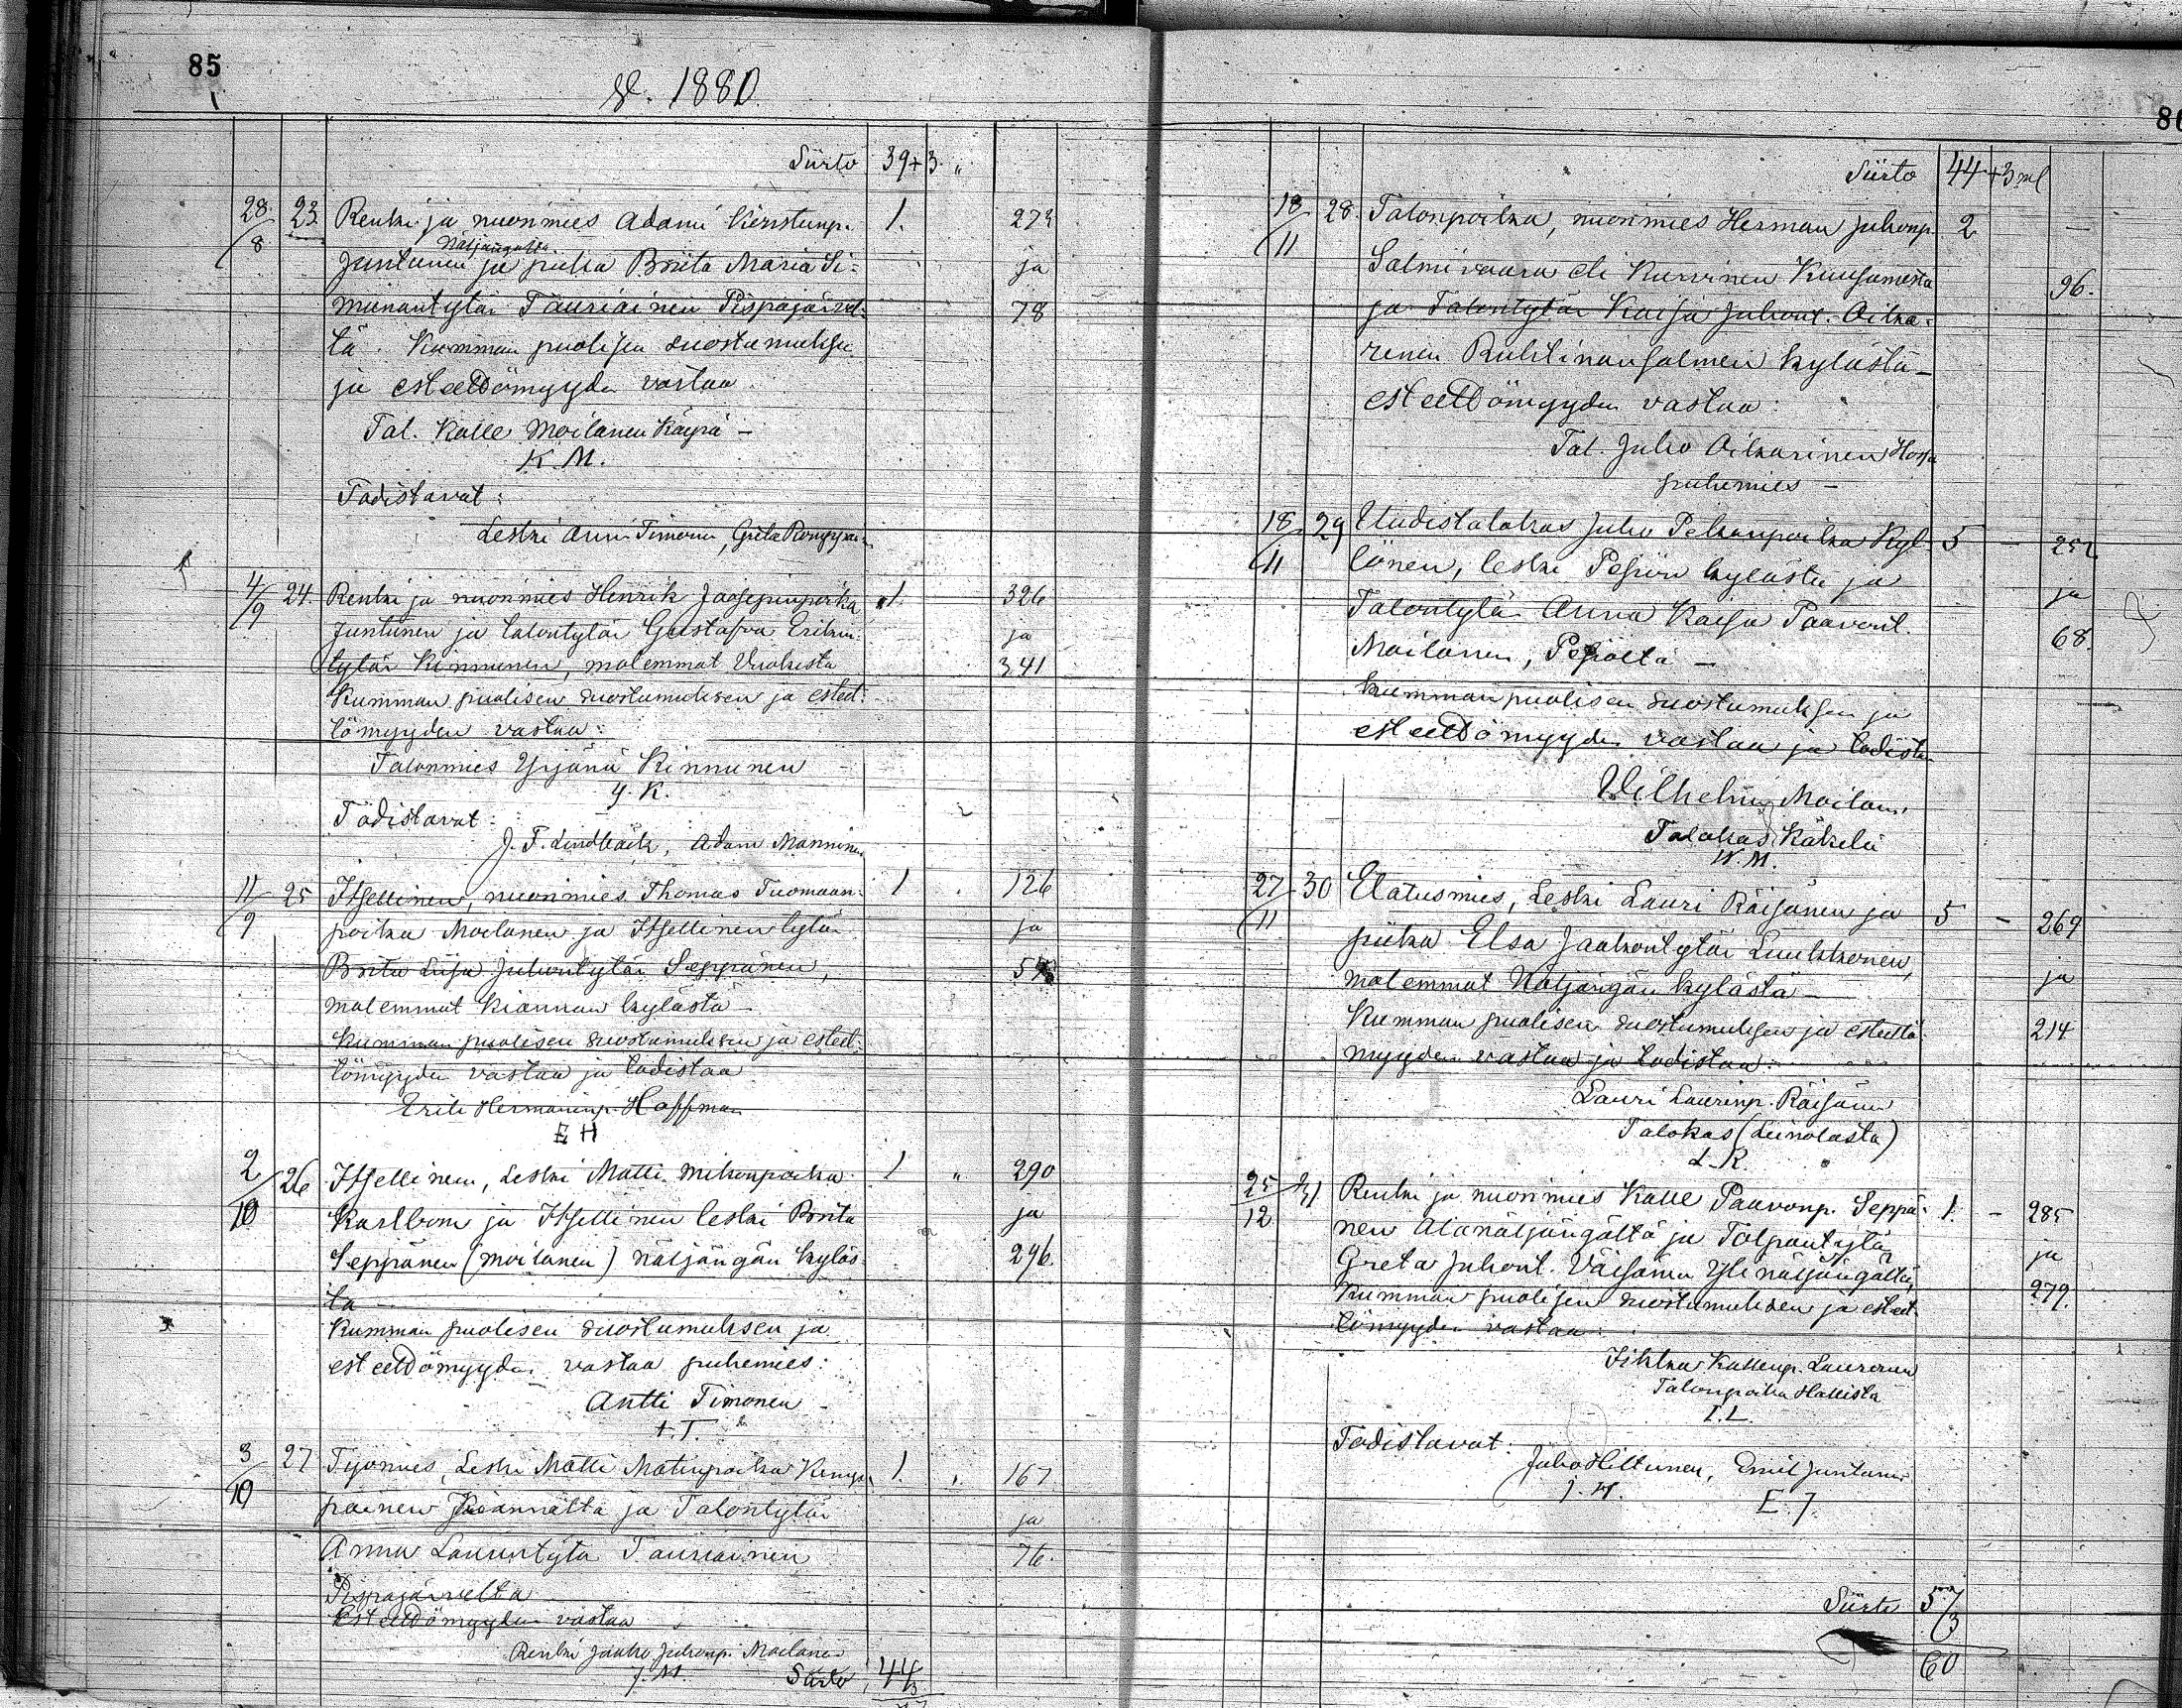 85
V. 1880.
Siirto 39+3 "
28/8 23. Renki ja nuorimies Adami Kinstunp. 1. 273
Näljängältä
Juntunen ja piika Briita Maria Si- ja
munantytär Tauriainen Pispajärvel- 78
tä. Kumman puolisen suostumuksen
ja esteettömyyden vastaa
Tal. Kalle Moilanen Käpä –
K. M.
Todistavat:
Leski Anni Timonen, Greta
4/9 24. Renki ja nuorimies Henrik Joosepinpoika 1. 326
Juntunen ja talontytär Gustafva Erikin- ja
tytär Kinnunen, molemmat Vuokista 341
Kumman puolisen suostumuksen ja esteet-
tömyyden vastaa:
Talonmies Yrjänä Kinnunen –
Y. K.
Todistavat:
J. F. Lindbäck, Adam Manninen
11/9 25 Itsellinen, nuorimies Thomas Tuomaan- 1 126
poika Moilanen ja Itsellinen tytär ja
Briita Liisa Juhontytär Seppänen,
molemmat Kiannan kylästä –
Kumman puolisen suostumuksen ja esteet-
tömyyden vastaa ja todistaa
Erik Hermaninp. Hoffman
E H
2/10 26 Itsellinen, Leski Matti Mikonpoika 1 " 290
Karlbom ja Itsellinen leski Briita ja
Seppänen (Moilanen) Näljängän kyläs- 296.
tä –
Kumman puolisen suostumuksen ja
esteettömyyden vastaa puhemies:
Antti Timonen –
A. T.
3/10 27 Työmies, Leski Matti Matinpoika Kemp- 1. " 167
painen Kiannalta ja Talontytär ja
Anna Laurintytä Tauriainen 76.
Pispajärveltä
Esteettömyyden vastaa
Renki Jaako Juhonp. Moilanen
J. M. Siirto 44/3
Siirto 44 + 3 ml
18/11 28. Talonpoika, nuorimies Herman Juhonp. 2 –
Salmivaara eli Kurvinen Kuusamosta 96.
ja Talontytär Kaisa Juhont. Oika-
rinen Ruhtinansalmen kylästä –
esteettömyyden vastaa:
Tal. Juho Oikarinen Hossa
puhemies –
18/11 29 Uudistalokas Juho Pekanpoika Kyl- 5 – 252
lönen, leski Pesiön kylästä ja ja
Talontytär Anna Kaisa Paavont. 68.
Moilanen, Pesiöltä –
Kumman puolisen suostumuksen ja
esteettömyyden vastaa ja todistaa
Vilhelm Moilanen
Talokas Käkelä
W. M.
27/11 30 Elatusmies, Leski Lauri Räisänen ja 5 – 269
piika Elsa Jaakontytär Luukkonen, ja
molemmat Näljängän kylästä –
Kumman puolisen suostumuksen ja esteettö- 214
myyden vastaa ja todistaa:
Lauri Laurinp. Räisänen
Talokas (Leinolasta)
L. R.
25/12 31 Renki ja nuorimies Kalle Paavonp. Seppä- 1. – 285
nen Alanäljängältä ja Torpantytär ja
Greta Juhont. Väisänen Ylinäljängältä, 279.
Kumman puolisen suostumuksen ja esteet-
tömyyden vastaa:
Iikka Kallenp. Lauronen
Talonpoika Hallista
I. L.
Todistavat:
Juho Hiltunen, Emil Juntunen
J. H. E. J.
Siirto 57/3
60